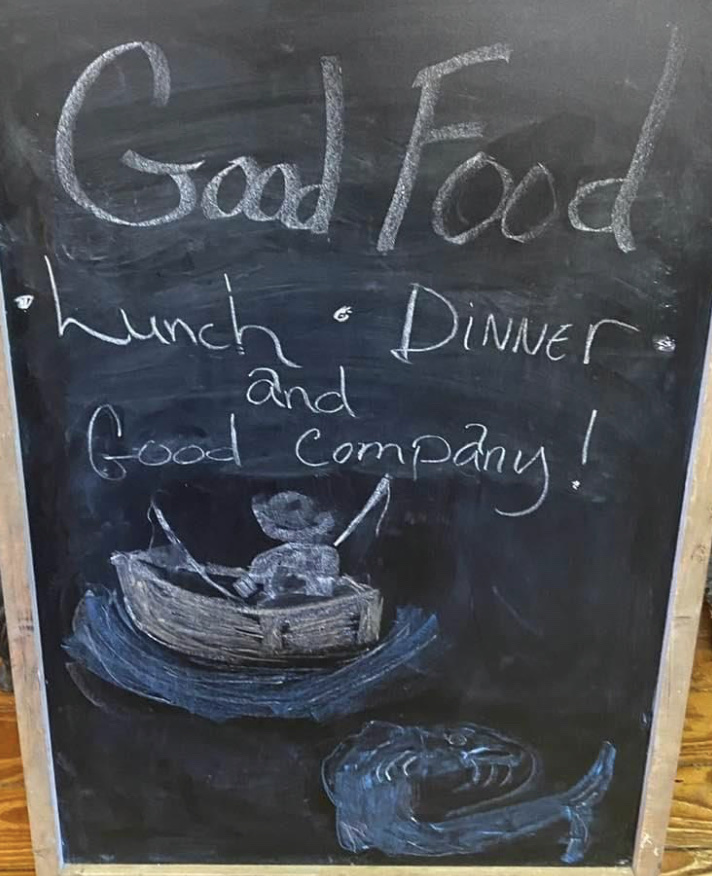 Good Food
• Lunch • DINNEr •
and
Good Company!